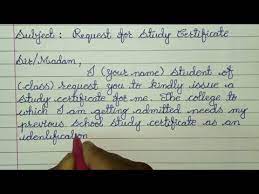 Subject: Request for Study Certificate
Sir/Madam,
I (your name) student of
(class) request you to kindly issue a
study certificate for me. The college to
which I am getting admitted needs my
previous school study certificate as an
idenlification